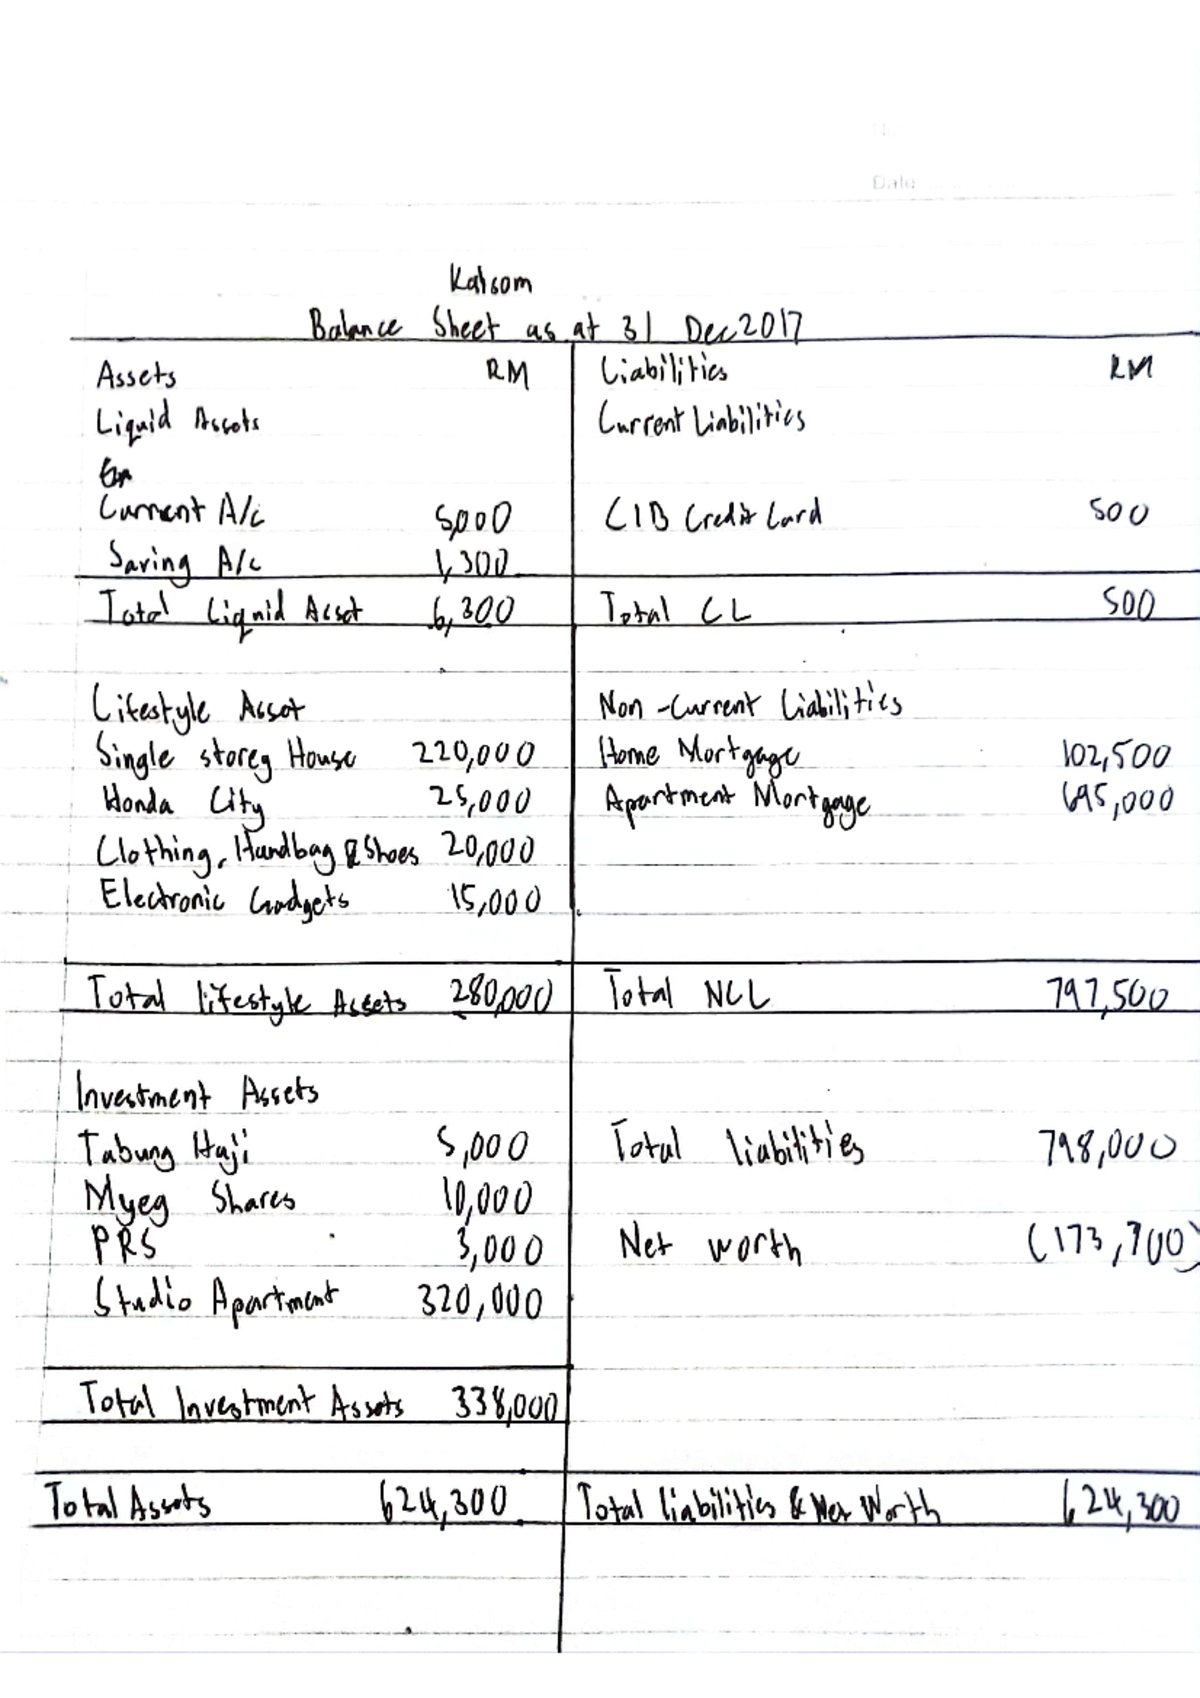 Date
Kalsom
Balance Sheet as at 31 Dec 2017
Assets RM Liabilities RM
Liquid Assets Current Liabilities
Current A/c 5,000 CIB Credit Card 500
Saving A/c 1,300
Total Liquid Asset 6,300 Total CL 500
Lifestyle Asset Non-Current Liabilities
Single storey House 220,000 Home Mortgage 102,500
Honda City 25,000 Apartment Mortgage 695,000
Clothing, Handbag & Shoes 20,000
Electronic Gadgets 15,000
Total lifestyle Assets 280,000 Total NCL 797,500
Investment Assets
Tabung Haji 5,000 Total liabilities 798,000
Myeg Shares 10,000
PRS 3,000 Net worth (173,700)
Studio Apartment 320,000
Total Investment Assets 338,000
Total Assets 624,300 Total liabilities & Net Worth 624,300